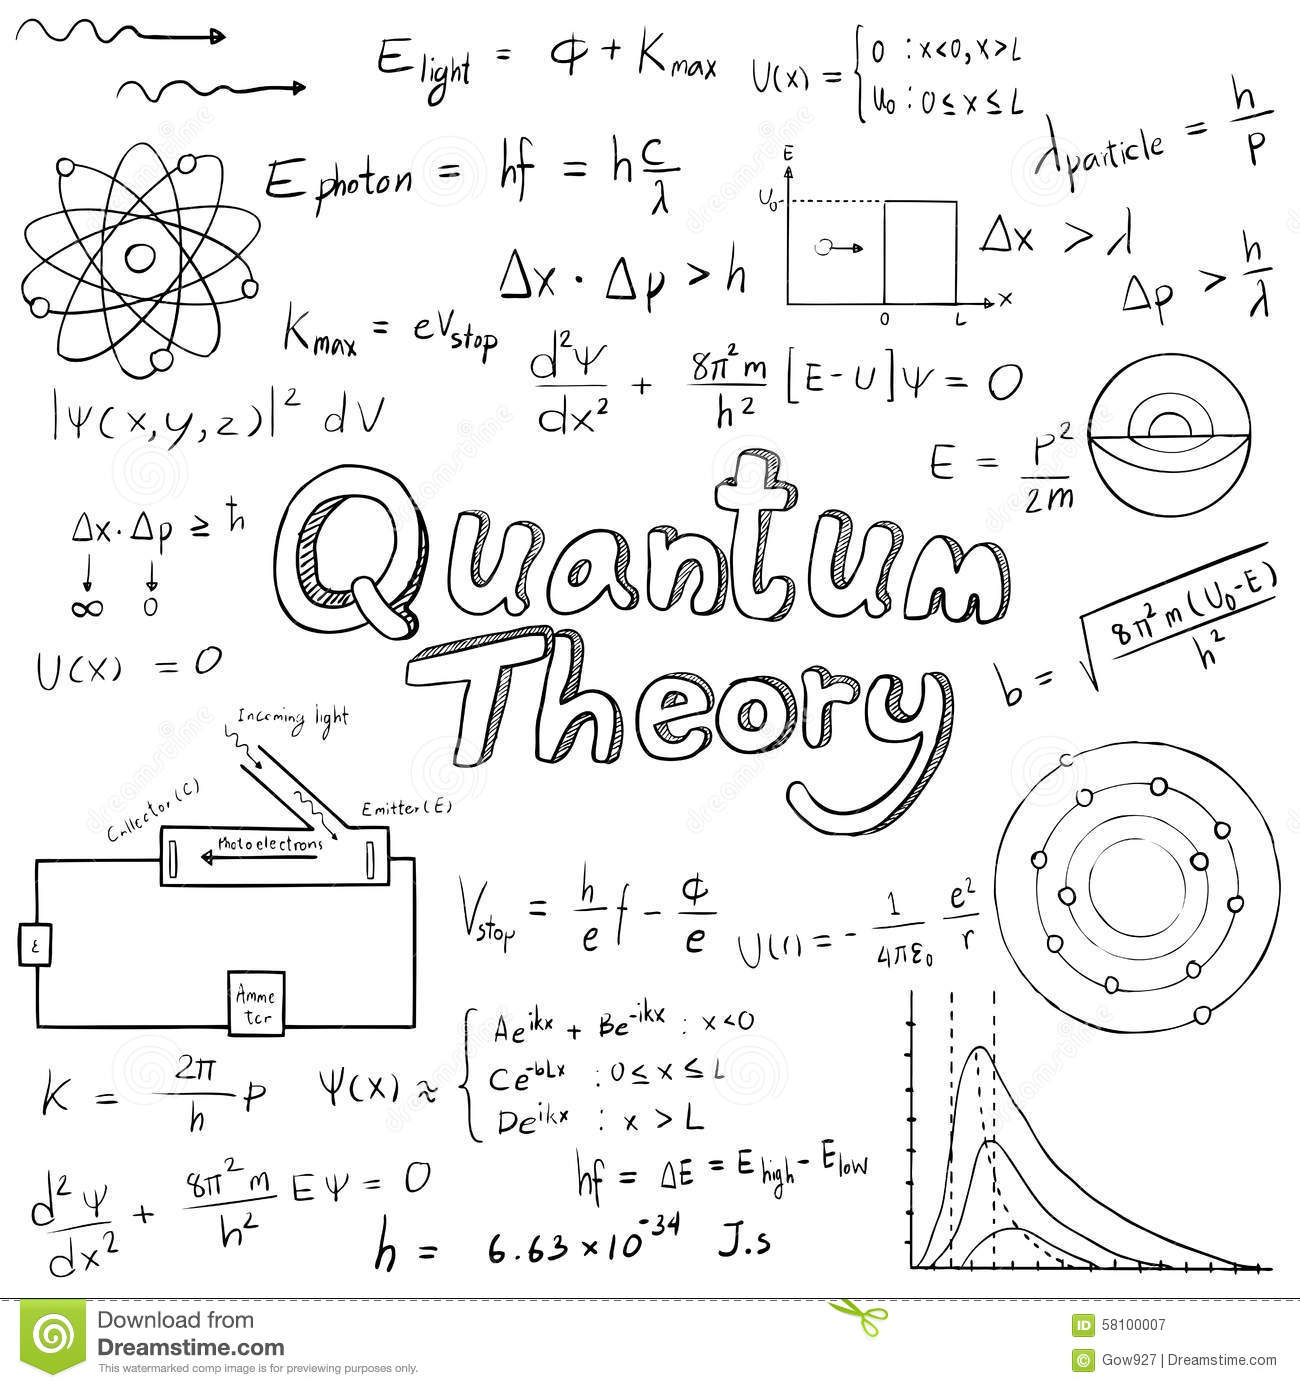 E light = Φ + K max
U(x) = { 0 : x<0, x>L
U₀ : 0 ≤ x ≤ L
λ particle = h/p
E photon = hf = h c/λ
E
U₀
0
L
x
Δx > λ
Δp > h/λ
Δx · Δp > h
K max = eV stop
d²ψ/dx² + 8π²m/h² [E-U]ψ = 0
|ψ(x,y,z)|² dV
E = p²/2m
Δx · Δp ≥ ħ
∞ 0
U(x) = 0
Quantum
Theory
b = √(8π²m(U₀-E)/h²)
Incoming light
Collector (C)
Emitter (E)
Photoelectrons
ε
Amme
ter
V stop = h/e f - Φ/e
U(r) = - 1/4πε₀ e²/r
K = 2π/h p
ψ(x) ≈ { Ae^ikx + Be^-ikx : x<0
Ce^-bLx : 0 ≤ x ≤ L
De^ikx : x > L
hf = ΔE = E high - E low
d²ψ/dx² + 8π²m/h² Eψ = 0
h = 6.63 × 10^-34 J.s
Download from
Dreamstime.com
This watermarked comp image is for previewing purposes only.
ID 58100007
© Gow927 | Dreamstime.com